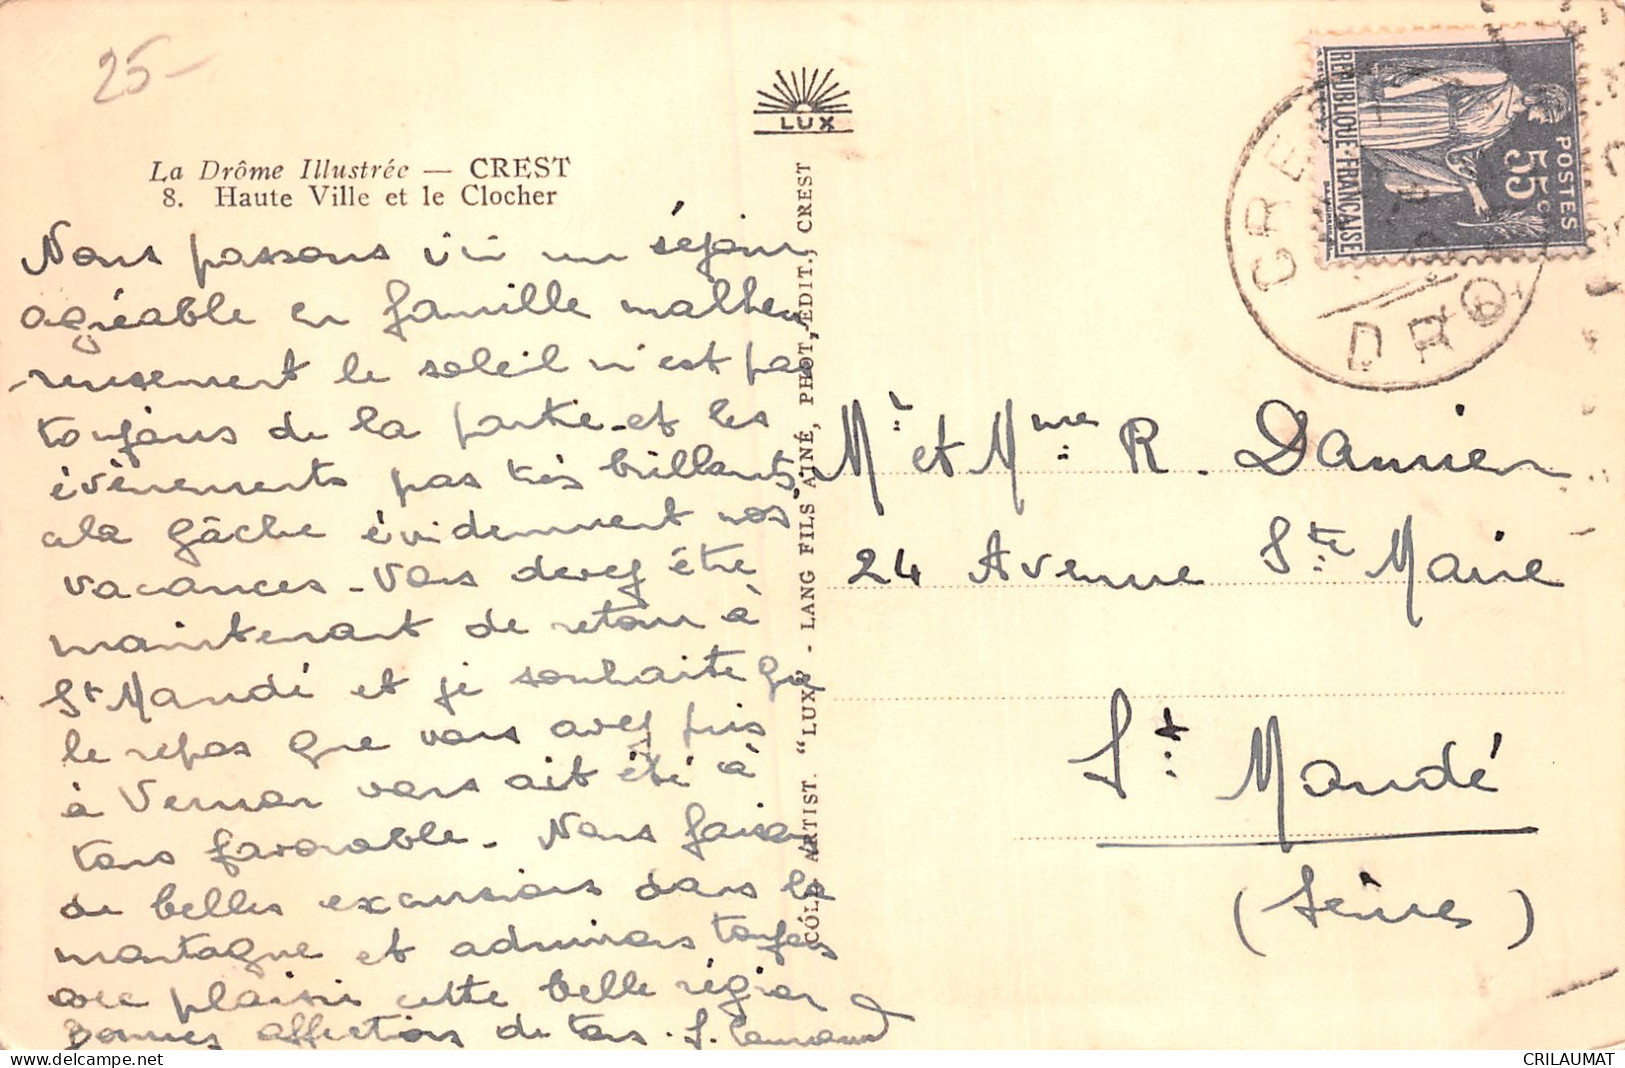 25-
LUX
La Drôme Illustrée — CREST
8. Haute Ville et le Clocher
Nous passons ici un séjour
agréable en famille malheu
reusement le soleil n'est pas
toujours de la partie et les
évènements pas très brillants
ala gâche évidemment nos
vacances - Vous devez être
maintenant de retour à
St Mandé et je souhaite que
le repos que vous avez pris
à Vernon vous ait été à
tous favorable. Nous faisons
de belles excursions dans la
montagne et admirons toujours
avec plaisir cette belle région
Bonnes affections de tous. J.
COLL. ARTIST. "LUX" - LANG FILS AINÉ, PHOT. EDIT., CREST
POSTES
55c
REPUBLIQUE FRANÇAISE
CREST
DROME
Mr et Mme R. Damien
24 Avenue Ste Marie
St Mandé
(Seine)
CRILAUMAT